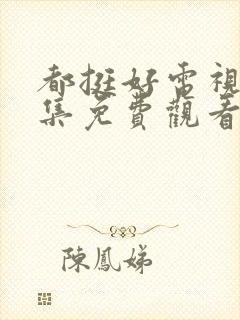 都挺好電視
集免費觀看
陳鳳娣